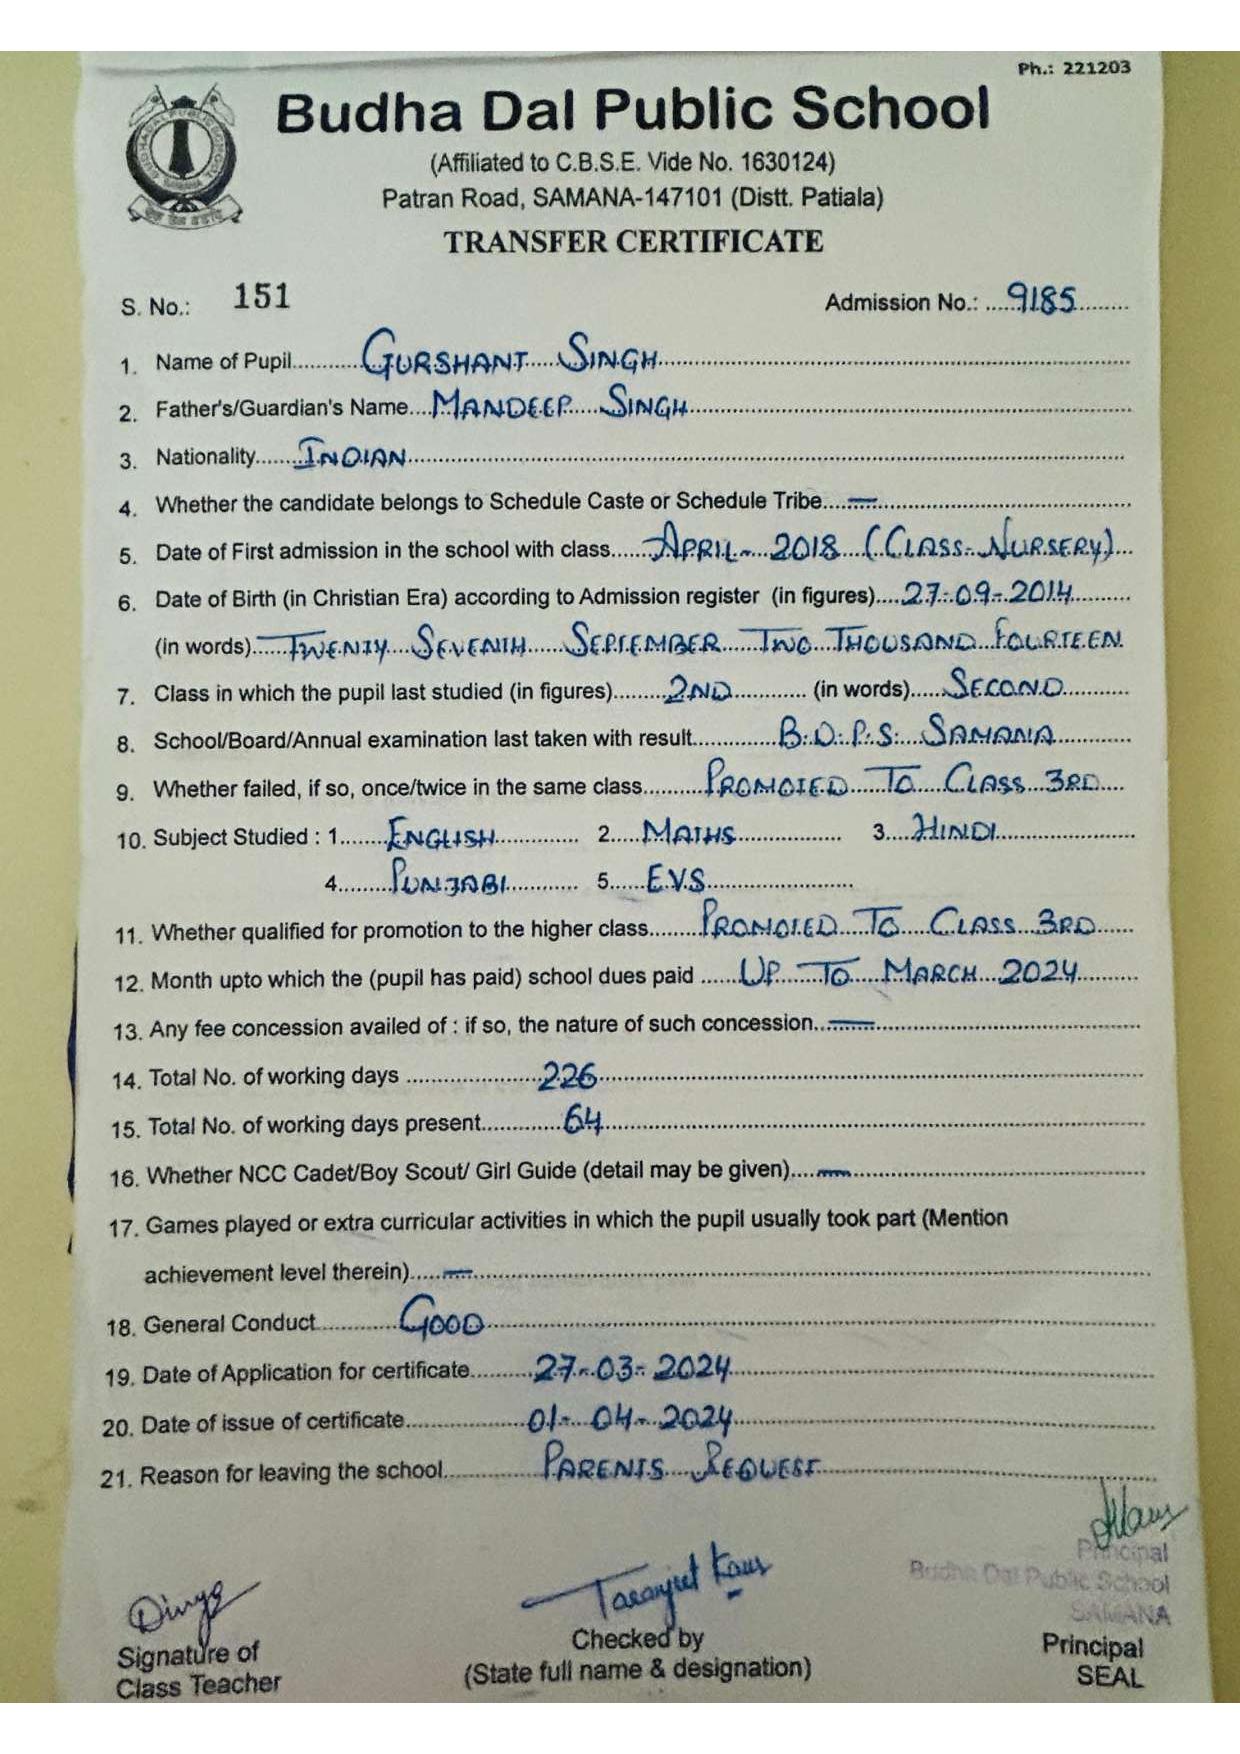 Ph.: 221203
Budha Dal Public School
(Affiliated to C.B.S.E. Vide No. 1630124)
Patran Road, SAMANA-147101 (Distt. Patiala)
TRANSFER CERTIFICATE
S. No.: 151 Admission No.: 9185
1. Name of Pupil GURSHANT SINGH
2. Father's/Guardian's Name MANDEEP SINGH
3. Nationality INDIAN
4. Whether the candidate belongs to Schedule Caste or Schedule Tribe —
5. Date of First admission in the school with class APRIL - 2018 (CLASS-NURSERY)
6. Date of Birth (in Christian Era) according to Admission register (in figures) 27-09-2014
(in words) TWENTY SEVENTH SEPTEMBER TWO THOUSAND FOURTEEN
7. Class in which the pupil last studied (in figures) 2ND (in words) SECOND
8. School/Board/Annual examination last taken with result B.D.P.S. SAMANA
9. Whether failed, if so, once/twice in the same class PROMOTED TO CLASS 3RD
10. Subject Studied : 1. ENGLISH 2. MATHS 3. HINDI
4. PUNJABI 5. EVS
11. Whether qualified for promotion to the higher class PROMOTED TO CLASS 3RD
12. Month upto which the (pupil has paid) school dues paid UP TO MARCH 2024
13. Any fee concession availed of : if so, the nature of such concession —
14. Total No. of working days 226
15. Total No. of working days present 64
16. Whether NCC Cadet/Boy Scout/ Girl Guide (detail may be given) —
17. Games played or extra curricular activities in which the pupil usually took part (Mention
achievement level therein) —
18. General Conduct GOOD
19. Date of Application for certificate 27-03-2024
20. Date of issue of certificate 01-04-2024
21. Reason for leaving the school PARENTS REQUEST
Principal
Budha Dal Public School
SAMANA
Taranjeet Kaur
Signature of Checked by Principal
Class Teacher (State full name & designation) SEAL